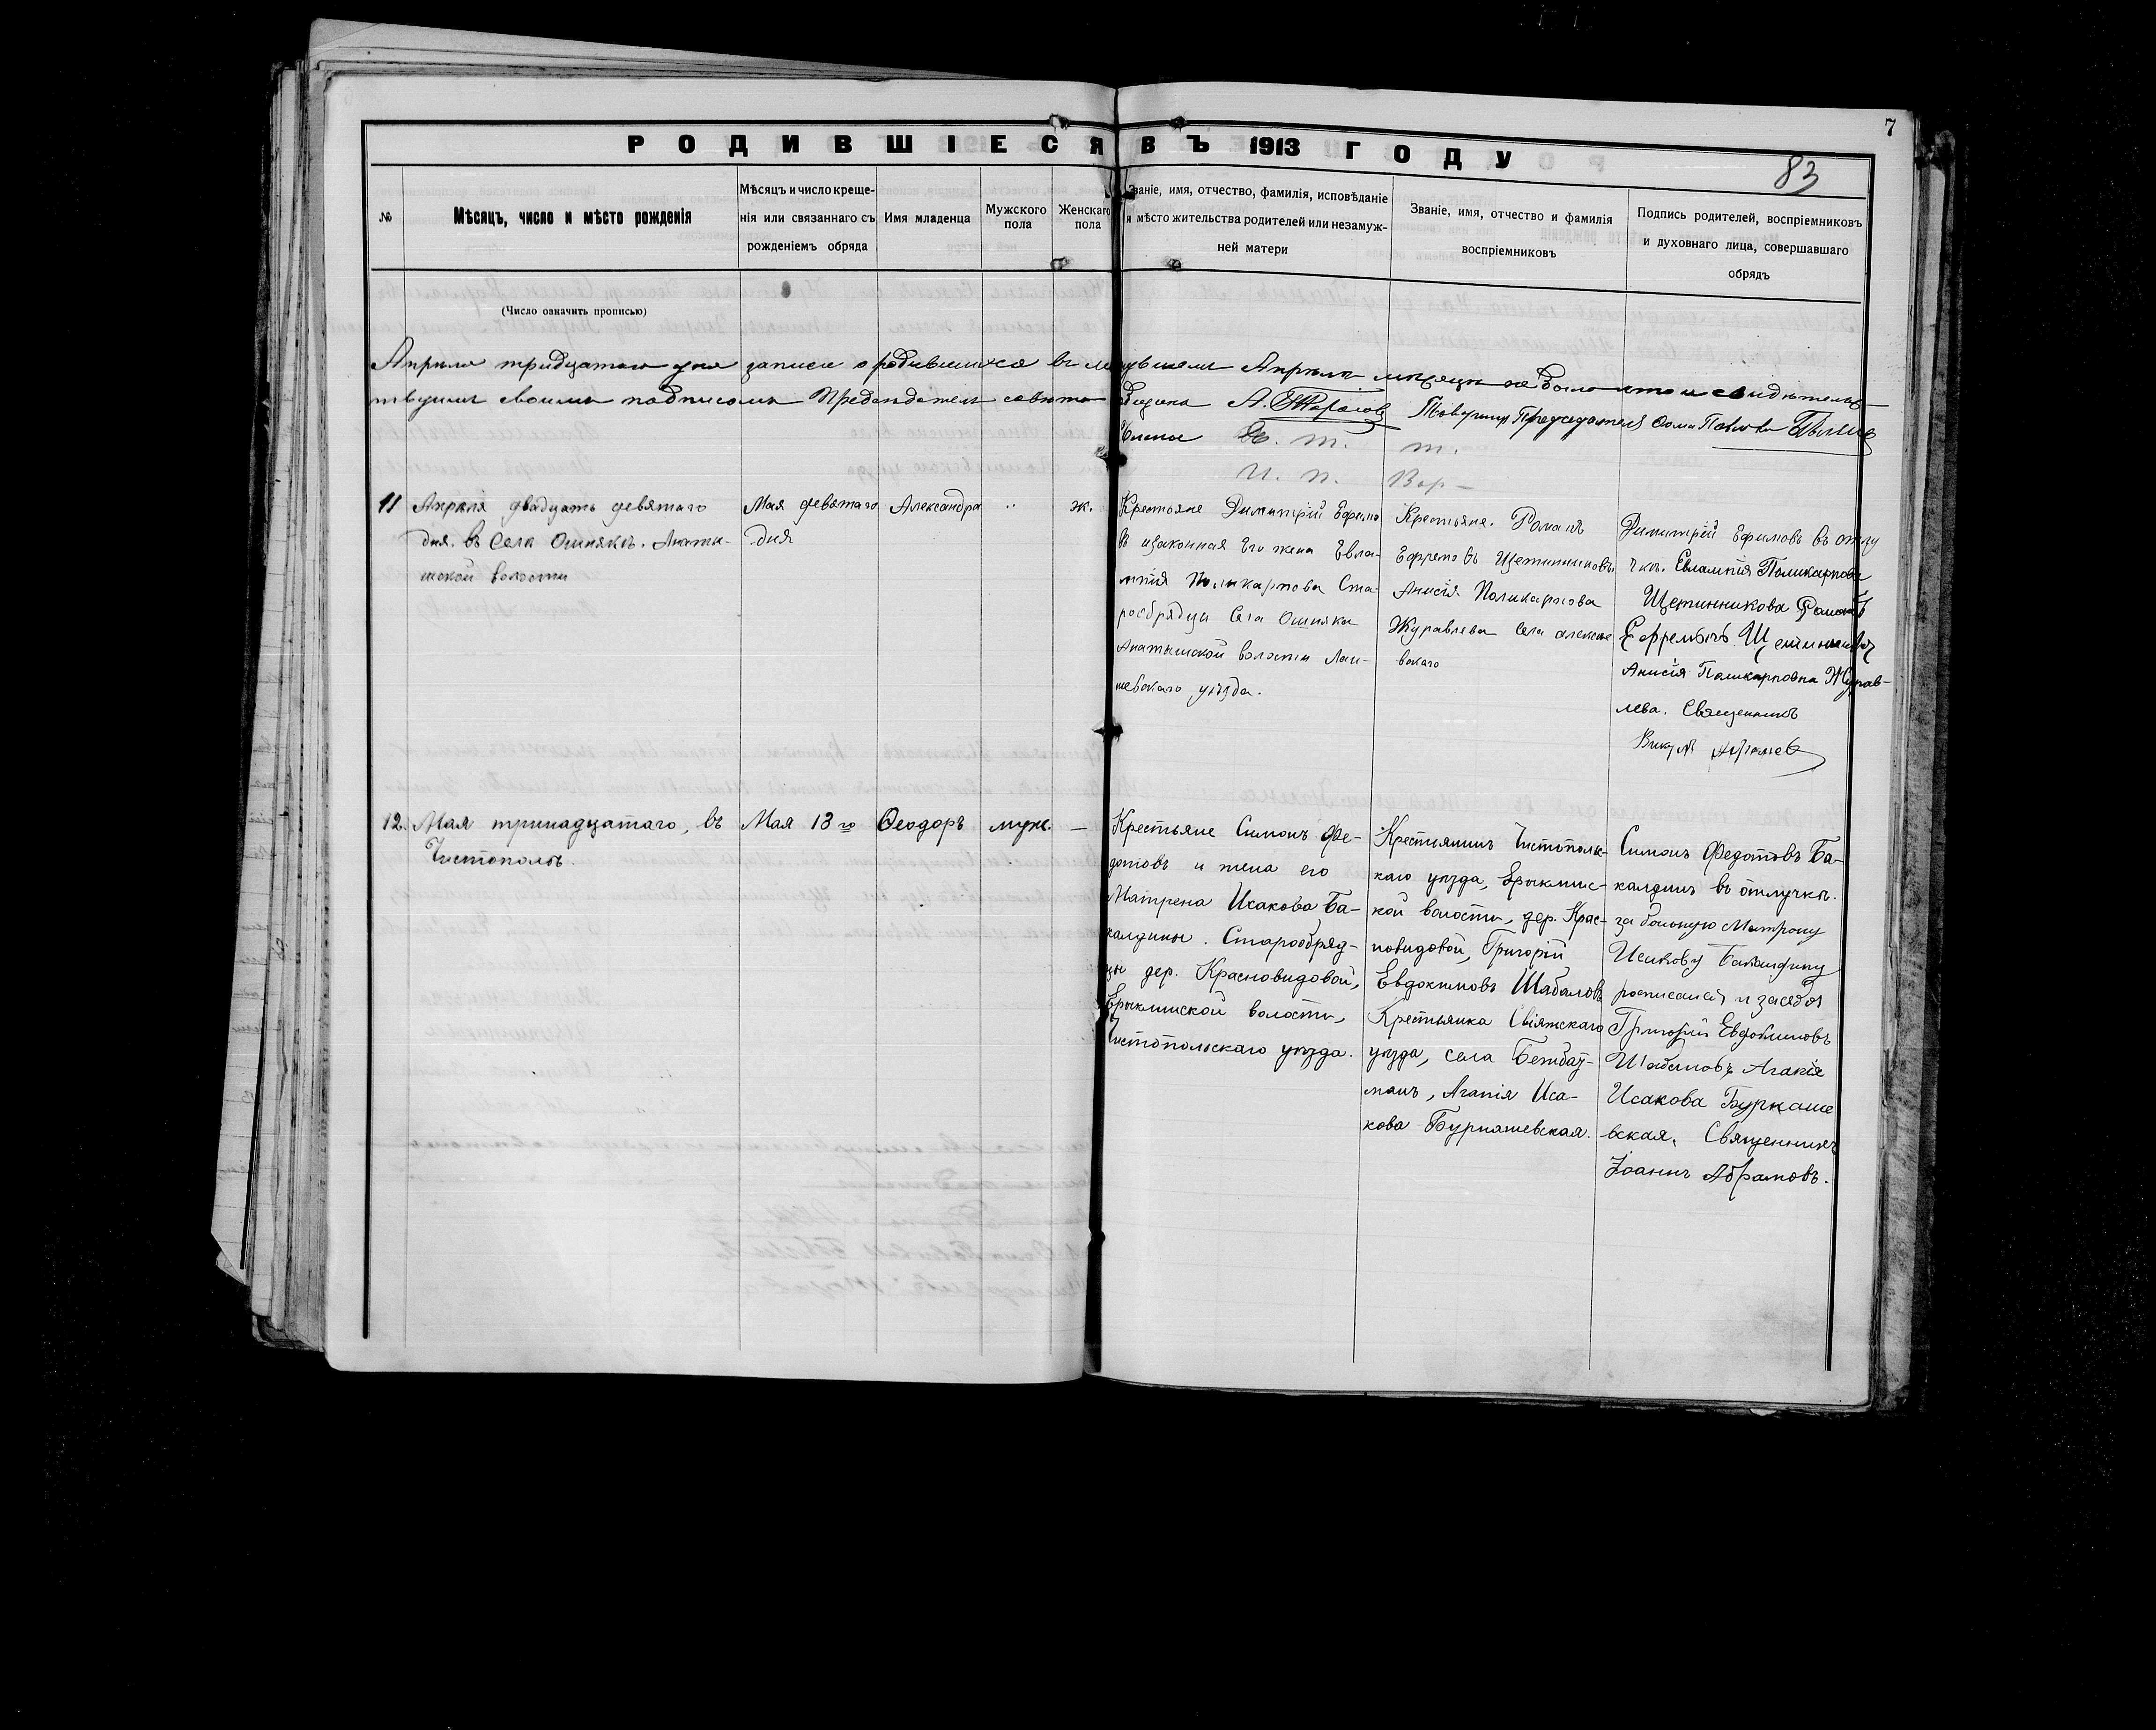 7
РОДИВШІЕСЯ ВЪ 1913 ГОДУ
83
№
Мѣсяцъ, число и мѣсто рожденія
Мѣсяцъ и число креще-
нія или связаннаго съ
рожденіемъ обряда
Имя младенца
Мужского
пола
Женскаго
пола
Званіе, имя, отчество, фамилія, исповѣданіе
и мѣсто жительства родителей или незамуж-
ней матери
Званіе, имя, отчество и фамилія
воспріемниковъ
Подпись родителей, воспріемниковъ
и духовнаго лица, совершавшаго
обрядъ
(Число означить прописью)
Апрѣля тридцатаго дня записи о родившихся въ Апрѣлѣ мѣсяцѣ не было что и свидѣтельс-
твуемъ своимъ подписомъ Предсѣдатель совѣта А. Товарищ Председателя Фома Павлов
т. т.
И. П.
11
Апрѣля двадцать девятаго
дня. въ Селѣ Ошнякѣ. Анаты-
шской волости
Мая девятаго
дня
Александра
ж.
Крестьяне Димитрій Ефремо
въ изаконная Его жена Евла-
мпія Поликарпова Ста-
рообрядцы Села Ошняка
Анатышской волости Лаи-
шевскаго уѣзда.
Крестьяне. Романъ
Ефремовъ Щетинниковъ
Анисія Поликарпова
Журавлева Села Алексѣе
вскаго
Димитрій Ефимовъ въ отлу
чкѣ. Евлампія Поликарпова
Щетинникова Романъ
Ефремовъ Щетинниковъ
Анисія Поликарповна Журав-
лева. Священникъ
12.
Мая тринадцатаго, въ
Чистополѣ.
Мая 13го
Ѳеодоръ
муж.
—
Крестьяне Симонъ Фе-
дотовъ и жена его
Матрена Исакова Ба-
калдины. Старообряд-
цы дер. Красновидовой,
Ерыклинской волости,
Чистопольскаго уѣзда.
Крестьянинъ Чистополь-
скаго уѣзда, Ерыклинс-
кой волости, дер. Крас-
новидовой, Григорій
Евдокимовъ Шабаловъ
Крестьянка Свіяжскаго
уѣзда, села Бетбат-
манъ, Агапія Иса-
кова Бурнашевская.
Симонъ Федотовъ Ба-
калдинъ въ отлучкѣ.
за больную Матрону
Исакову Бакалдину
росписался и засебя
Григорій Евдокимовъ
Шабаловъ Агапія
Исакова Бурнаше
вская. Священникъ
Іоаннъ Абрамовъ.